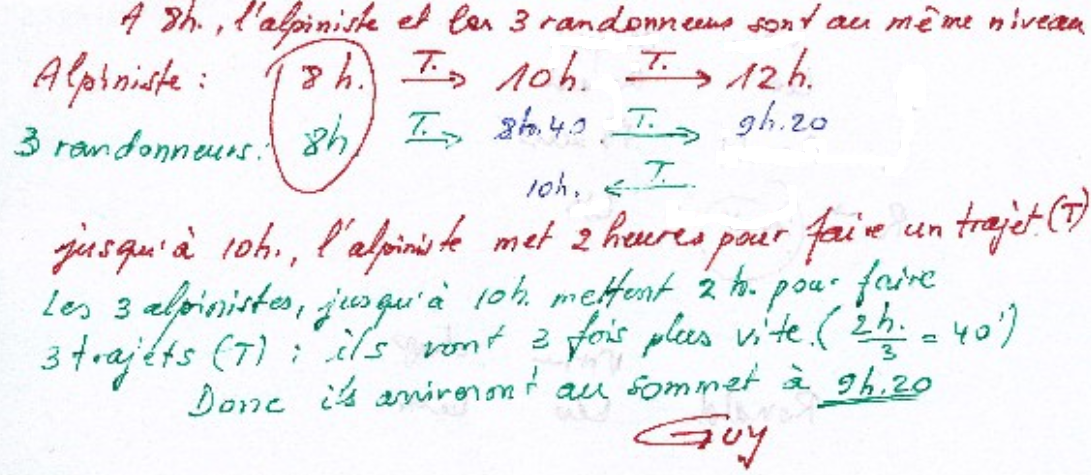 A 8h., l'alpiniste et les 3 randonneurs sont au même niveau
Alpiniste : 8 h. T. → 10h. T. → 12 h.
3 randonneurs: 8h T. → 8h.40 T. → 9h.20
10h. ← T.
jusqu'à 10h., l'alpiniste met 2 heures pour faire un trajet.(T)
Les 3 alpinistes, jusqu'à 10h. mettent 2 h. pour faire
3 trajets (T) : ils vont 3 fois plus vite. ( 2h./3 = 40')
Donc ils arriveront au sommet à 9h.20
Guy